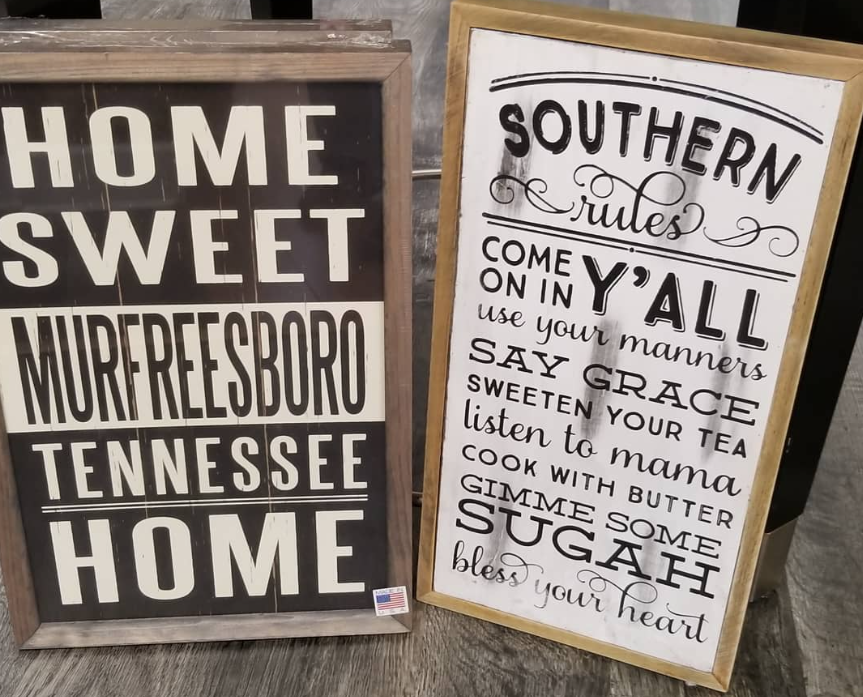 HOME
SWEET
MURFREESBORO
TENNESSEE
HOME
MADE IN
U.S.A
SOUTHERN
rules
COME
ON IN Y'ALL
use your manners
SAY GRACE
SWEETEN YOUR TEA
listen to mama
COOK WITH BUTTER
GIMME SOME
SUGAH
bless your heart